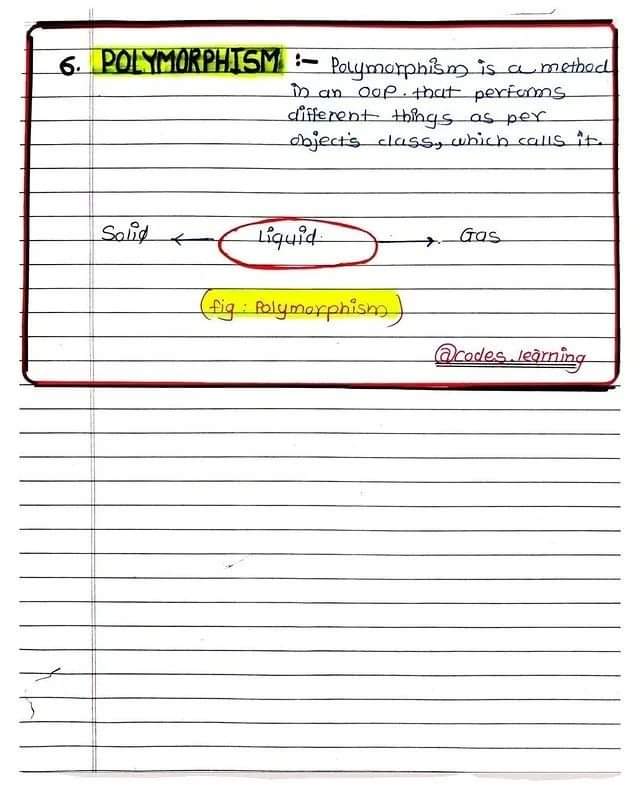 6. POLYMORPHISM :- Polymorphism is a method
in an OOP. that performs
different things as per
object's class, which calls it.
Solid ← Liquid → Gas
(fig : Polymorphism)
@codes.learning